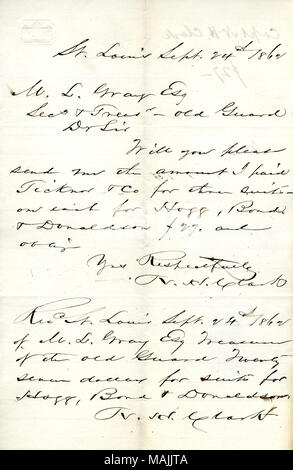 St. Louis Sept. 24th 1862
M. L. Gray Esq
Secy & Treasr - old Guard
Dr Sir
Will you please
send me the amount I paid
Ticknor & Co for three suits
one each for Hogg, Bond
& Donaldson $27. and
oblige
Yrs Respectfully
N. H. Clark
Recd St. Louis Sept. 24th 1862
of M. L. Gray Esq Treasurer
of the old Guard Twenty
seven dollars for suits for
Hogg, Bond & Donaldson.
N. H. Clark
alamy
Image ID: MAJJTA
www.alamy.com